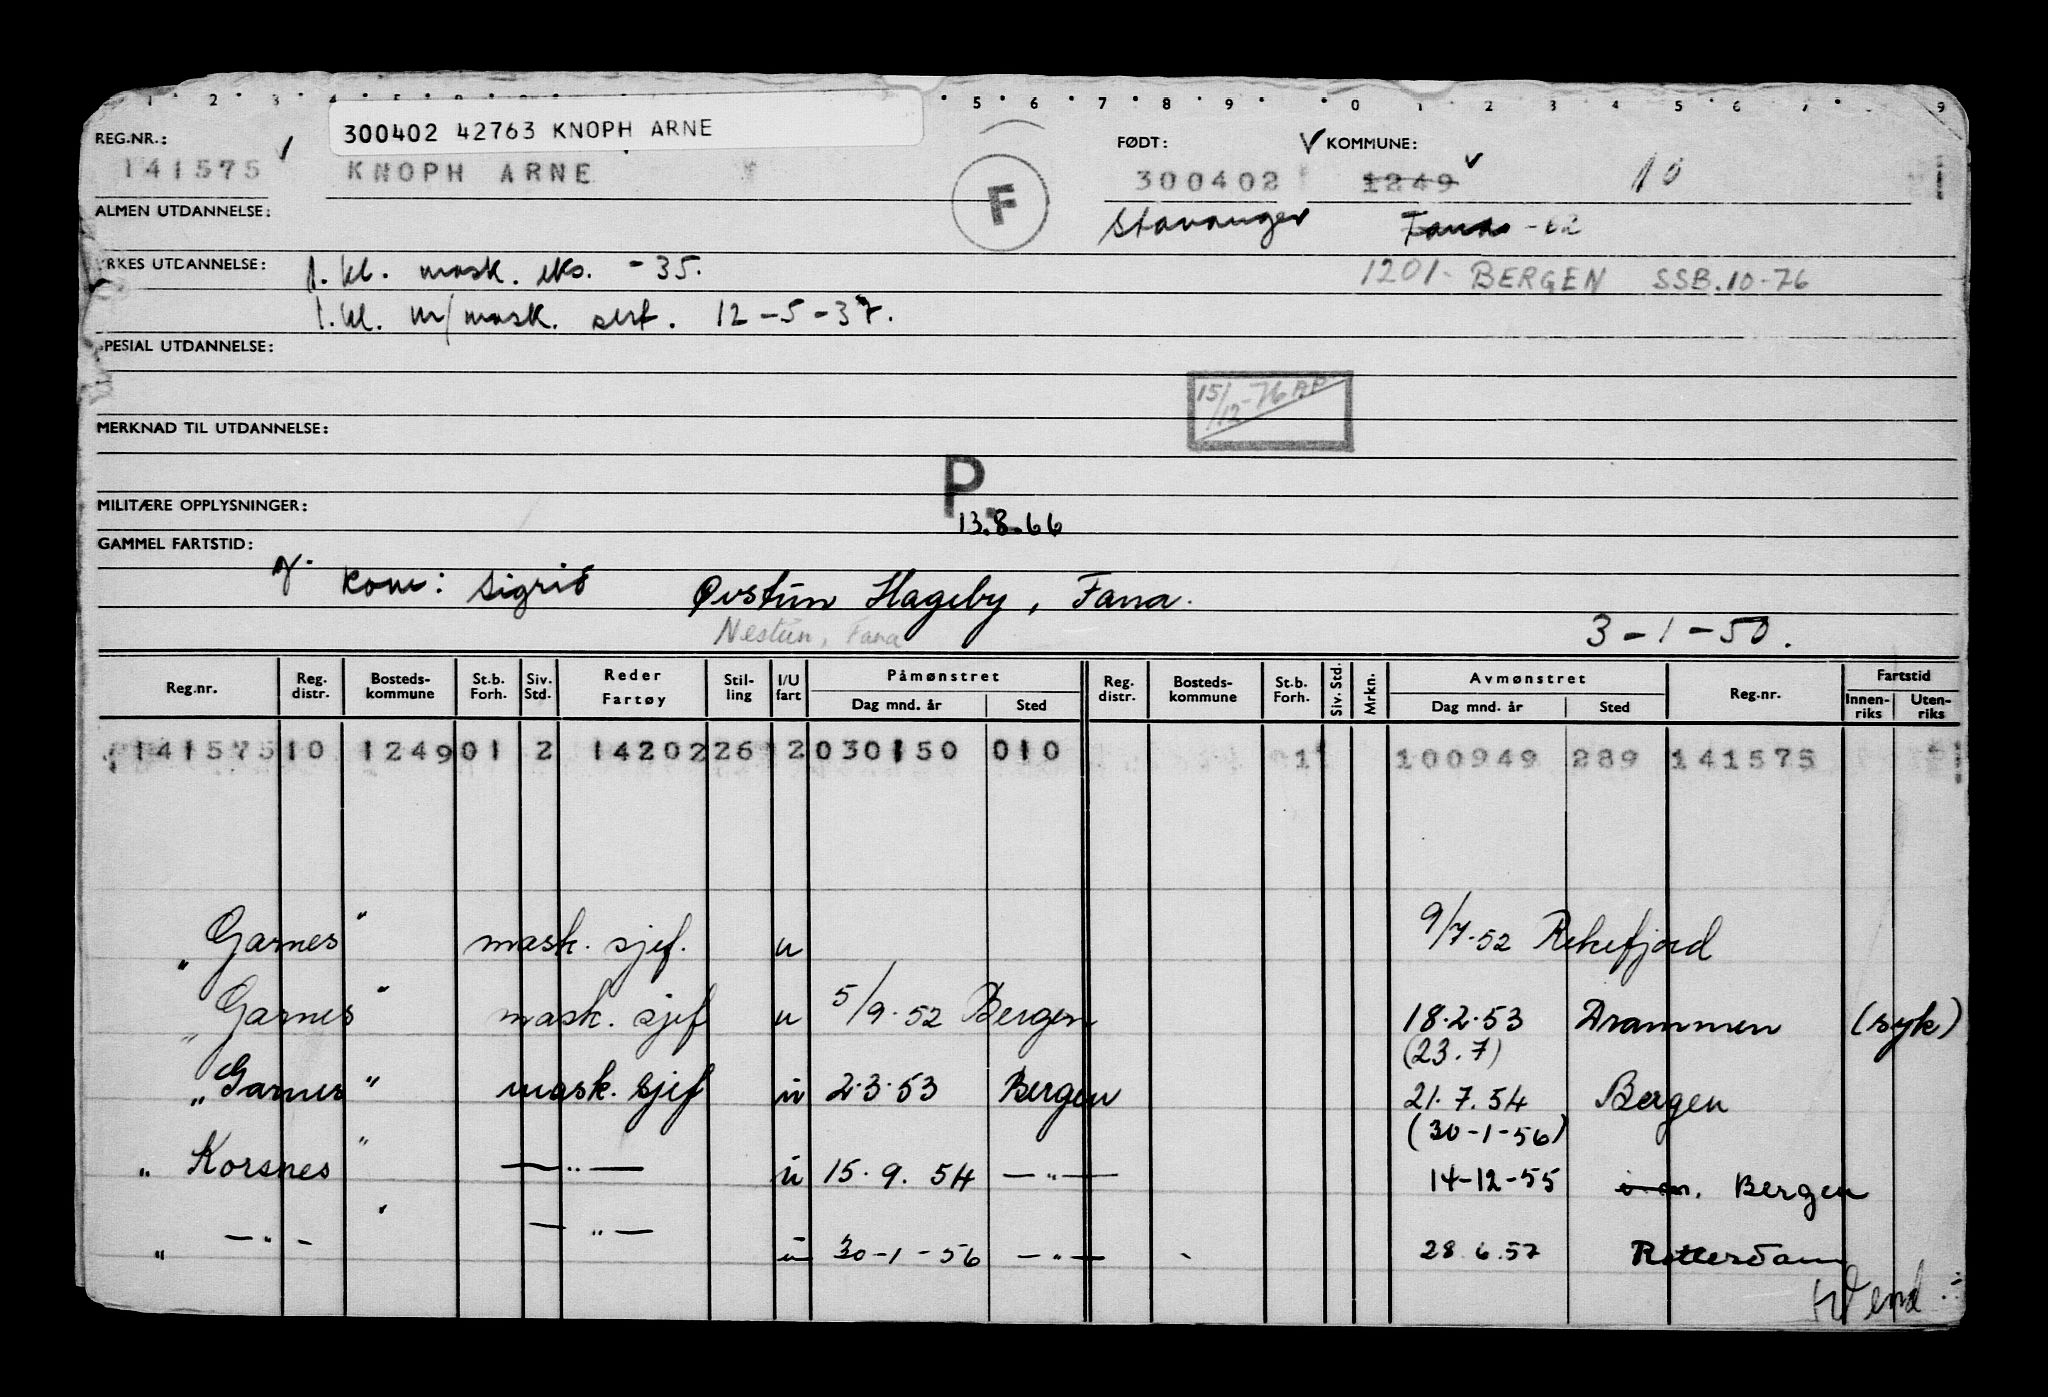 300402 42763 KNOPH ARNE
REG.NR.: FØDT: KOMMUNE:
141575 KNOPH ARNE F 300402 1249 10
ALMEN UTDANNELSE: Stavanger Fana -62
YRKES UTDANNELSE: 1. kl. mask. eks. - 35. 1201- BERGEN SSB.10-76
1. kl. m/mask. sert. 12-5-37.
SPESIAL UTDANNELSE:
15/12-76
MERKNAD TIL UTDANNELSE:
P.
MILITÆRE OPPLYSNINGER: 13.8.66
GAMMEL FARTSTID:
g. kone: Sigrid Øvstün Hageby, Fana.
Nestün, Fana 3-1-50.
Reg.nr. Reg. distr. Bosteds-kommune St.b. Forh. Siv. Std. Reder Fartøy Stil-ling I/U fart Påmønstret Dag mnd. år Sted Reg. distr. Bosteds-kommune St.b. Forh. Siv. Std. Mrkn. Avmønstret Dag mnd. år Sted Reg.nr. Fartstid Innen-riks Uten-riks
141575 10 1249 01 2 14202 26 2 030150 010 1 100949 289 141575
"Garnes" mask. sjef. u 9/7.52 Rekefjord
"Garnes" mask. sjef u 5/9.52 Bergen 18.2.53 Drammen (syk)
(23.7)
"Garnes" mask. sjef u 2.3.53 Bergen 21.7.54 Bergen
(30-1-56)
"Korsnes" —"— u 15.9.54 —"— 14-12-55 Bergen
" —"— " —"— u 30-1-56 —"— 28.6.57 Rotterdam
Vend